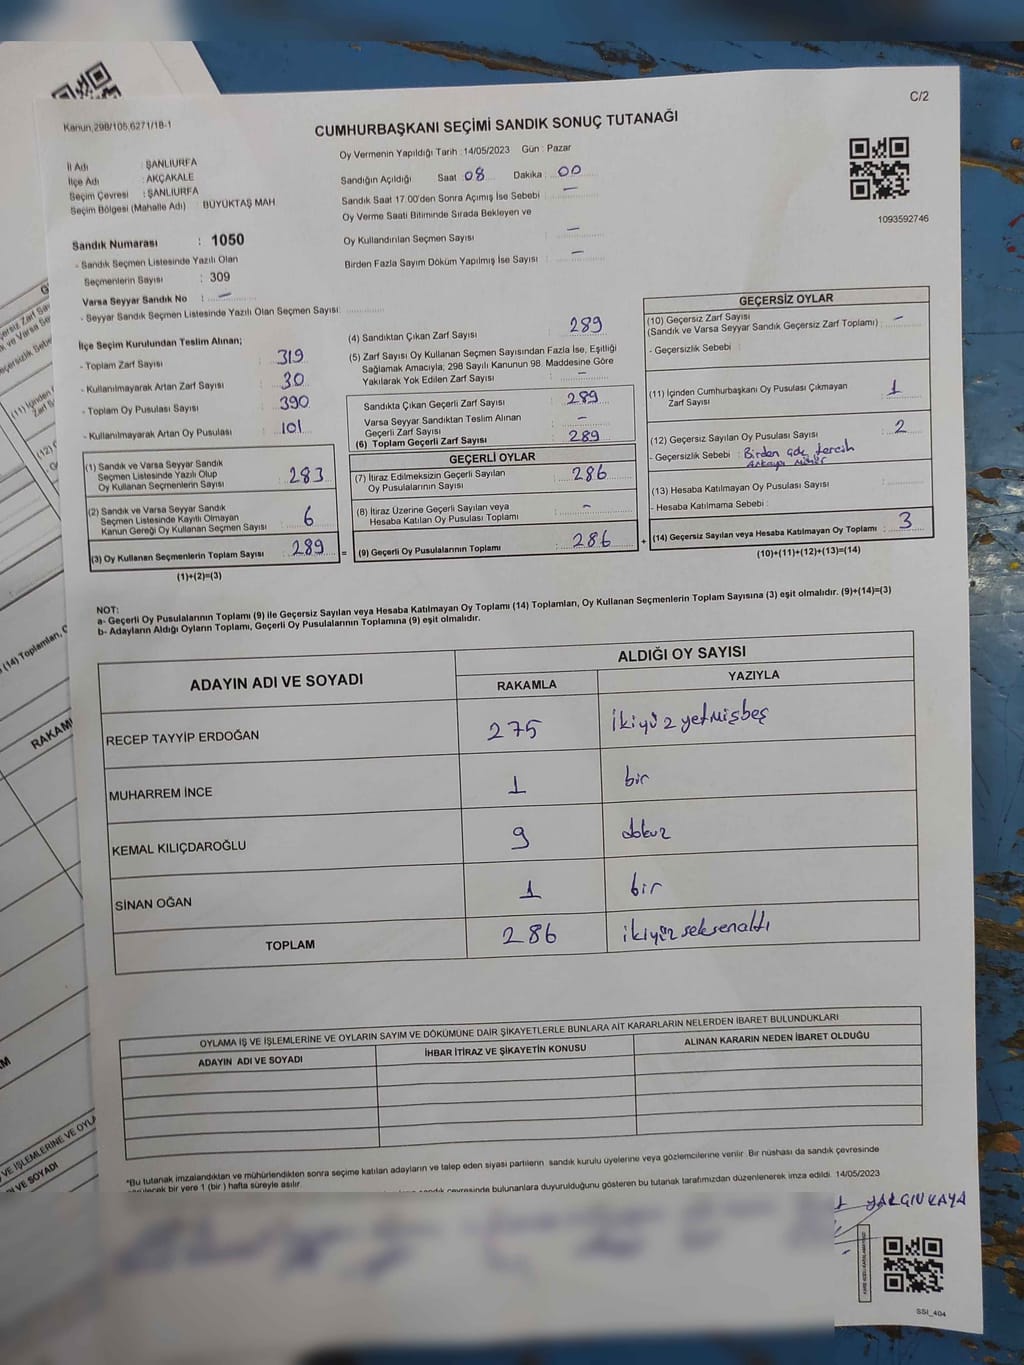 C/2
Kanun,298/105,6271/18-1
CUMHURBAŞKANI SEÇİMİ SANDIK SONUÇ TUTANAĞI
Oy Vermenin Yapıldığı Tarih :14/05/2023 Gün : Pazar
İl Adı : ŞANLIURFA
İlçe Adı : AKÇAKALE
Seçim Çevresi : ŞANLIURFA
Seçim Bölgesi (Mahalle Adı) : BÜYÜKTAŞ MAH
Sandığın Açıldığı Saat 08 Dakika 00
Sandık Saat 17.00'den Sonra Açımış İse Sebebi : —
Oy Verme Saati Bitiminde Sırada Bekleyen ve
Oy Kullandırılan Seçmen Sayısı : —
Birden Fazla Sayım Döküm Yapılmış İse Sayısı : —
1093592746
Sandık Numarası : 1050
- Sandık Seçmen Listesinde Yazılı Olan
Seçmenlerin Sayısı : 309
Varsa Seyyar Sandık No : —
- Seyyar Sandık Seçmen Listesinde Yazılı Olan Seçmen Sayısı:
İlçe Seçim Kurulundan Teslim Alınan;
- Toplam Zarf Sayısı : 319
- Kullanılmayarak Artan Zarf Sayısı : 30
- Toplam Oy Pusulası Sayısı : 390
- Kullanılmayarak Artan Oy Pusulası : 101
(1) Sandık ve Varsa Seyyar Sandık
Seçmen Listesinde Yazılı Olup
Oy Kullanan Seçmenlerin Sayısı : 283
(2) Sandık ve Varsa Seyyar Sandık
Seçmen Listesinde Kayıtlı Olmayan
Kanun Gereği Oy Kullanan Seçmen Sayısı : 6
(3) Oy Kullanan Seçmenlerin Toplam Sayısı : 289 =
(1)+(2)=(3)
(4) Sandıktan Çıkan Zarf Sayısı : 289
(5) Zarf Sayısı Oy Kullanan Seçmen Sayısından Fazla İse, Eşitliği
Sağlamak Amacıyla; 298 Sayılı Kanunun 98. Maddesine Göre
Yakılarak Yok Edilen Zarf Sayısı : —
Sandıkta Çıkan Geçerli Zarf Sayısı : 289
Varsa Seyyar Sandıktan Teslim Alınan
Geçerli Zarf Sayısı : —
(6) Toplam Geçerli Zarf Sayısı : 289
GEÇERLİ OYLAR
(7) İtiraz Edilmeksizin Geçerli Sayılan
Oy Pusulalarının Sayısı : 286
(8) İtiraz Üzerine Geçerli Sayılan veya
Hesaba Katılan Oy Pusulası Toplamı : -
(9) Geçerli Oy Pusulalarının Toplamı : 286 +
GEÇERSİZ OYLAR
(10) Geçersiz Zarf Sayısı
(Sandık ve Varsa Seyyar Sandık Geçersiz Zarf Toplamı) : -
- Geçersizlik Sebebi :
(11) İçinden Cumhurbaşkanı Oy Pusulası Çıkmayan
Zarf Sayısı : 1
(12) Geçersiz Sayılan Oy Pusulası Sayısı : 2
- Geçersizlik Sebebi : Birden çok tercih
Arkaya mühür
(13) Hesaba Katılmayan Oy Pusulası Sayısı :
- Hesaba Katılmama Sebebi :
(14) Geçersiz Sayılan veya Hesaba Katılmayan Oy Toplamı : 3
(10)+(11)+(12)+(13)=(14)
NOT:
a- Geçerli Oy Pusulalarının Toplamı (9) ile Geçersiz Sayılan veya Hesaba Katılmayan Oy Toplamı (14) Toplamları, Oy Kullanan Seçmenlerin Toplam Sayısına (3) eşit olmalıdır. (9)+(14)=(3)
b- Adayların Aldığı Oyların Toplamı, Geçerli Oy Pusulalarının Toplamına (9) eşit olmalıdır.
ADAYIN ADI VE SOYADI
ALDIĞI OY SAYISI
RAKAMLA YAZIYLA
RECEP TAYYİP ERDOĞAN 275 ikiyüz yetmişbeş
MUHARREM İNCE 1 bir
KEMAL KILIÇDAROĞLU 9 dokuz
SİNAN OĞAN 1 bir
TOPLAM 286 ikiyüz seksenaltı
OYLAMA İŞ VE İŞLEMLERİNE VE OYLARIN SAYIM VE DÖKÜMÜNE DAİR ŞİKAYETLERLE BUNLARA AİT KARARLARIN NELERDEN İBARET BULUNDUKLARI
ADAYIN ADI VE SOYADI İHBAR İTİRAZ VE ŞİKAYETİN KONUSU ALINAN KARARIN NEDEN İBARET OLDUĞU
*Bu tutanak imzalandıktan ve mühürlendikten sonra seçime katılan adayların ve talep eden siyasi partilerin sandık kurulu üyelerine veya gözlemcilerine verilir. Bir nüshası da sandık çevresinde
bir yere 1 (bir) hafta süreyle asılır.
sandık çevresinde bulunanlara duyurulduğunu gösteren bu tutanak tarafımızdan düzenlenerek imza edildi. 14/05/2023
YALGIN KAYA
SSI_404